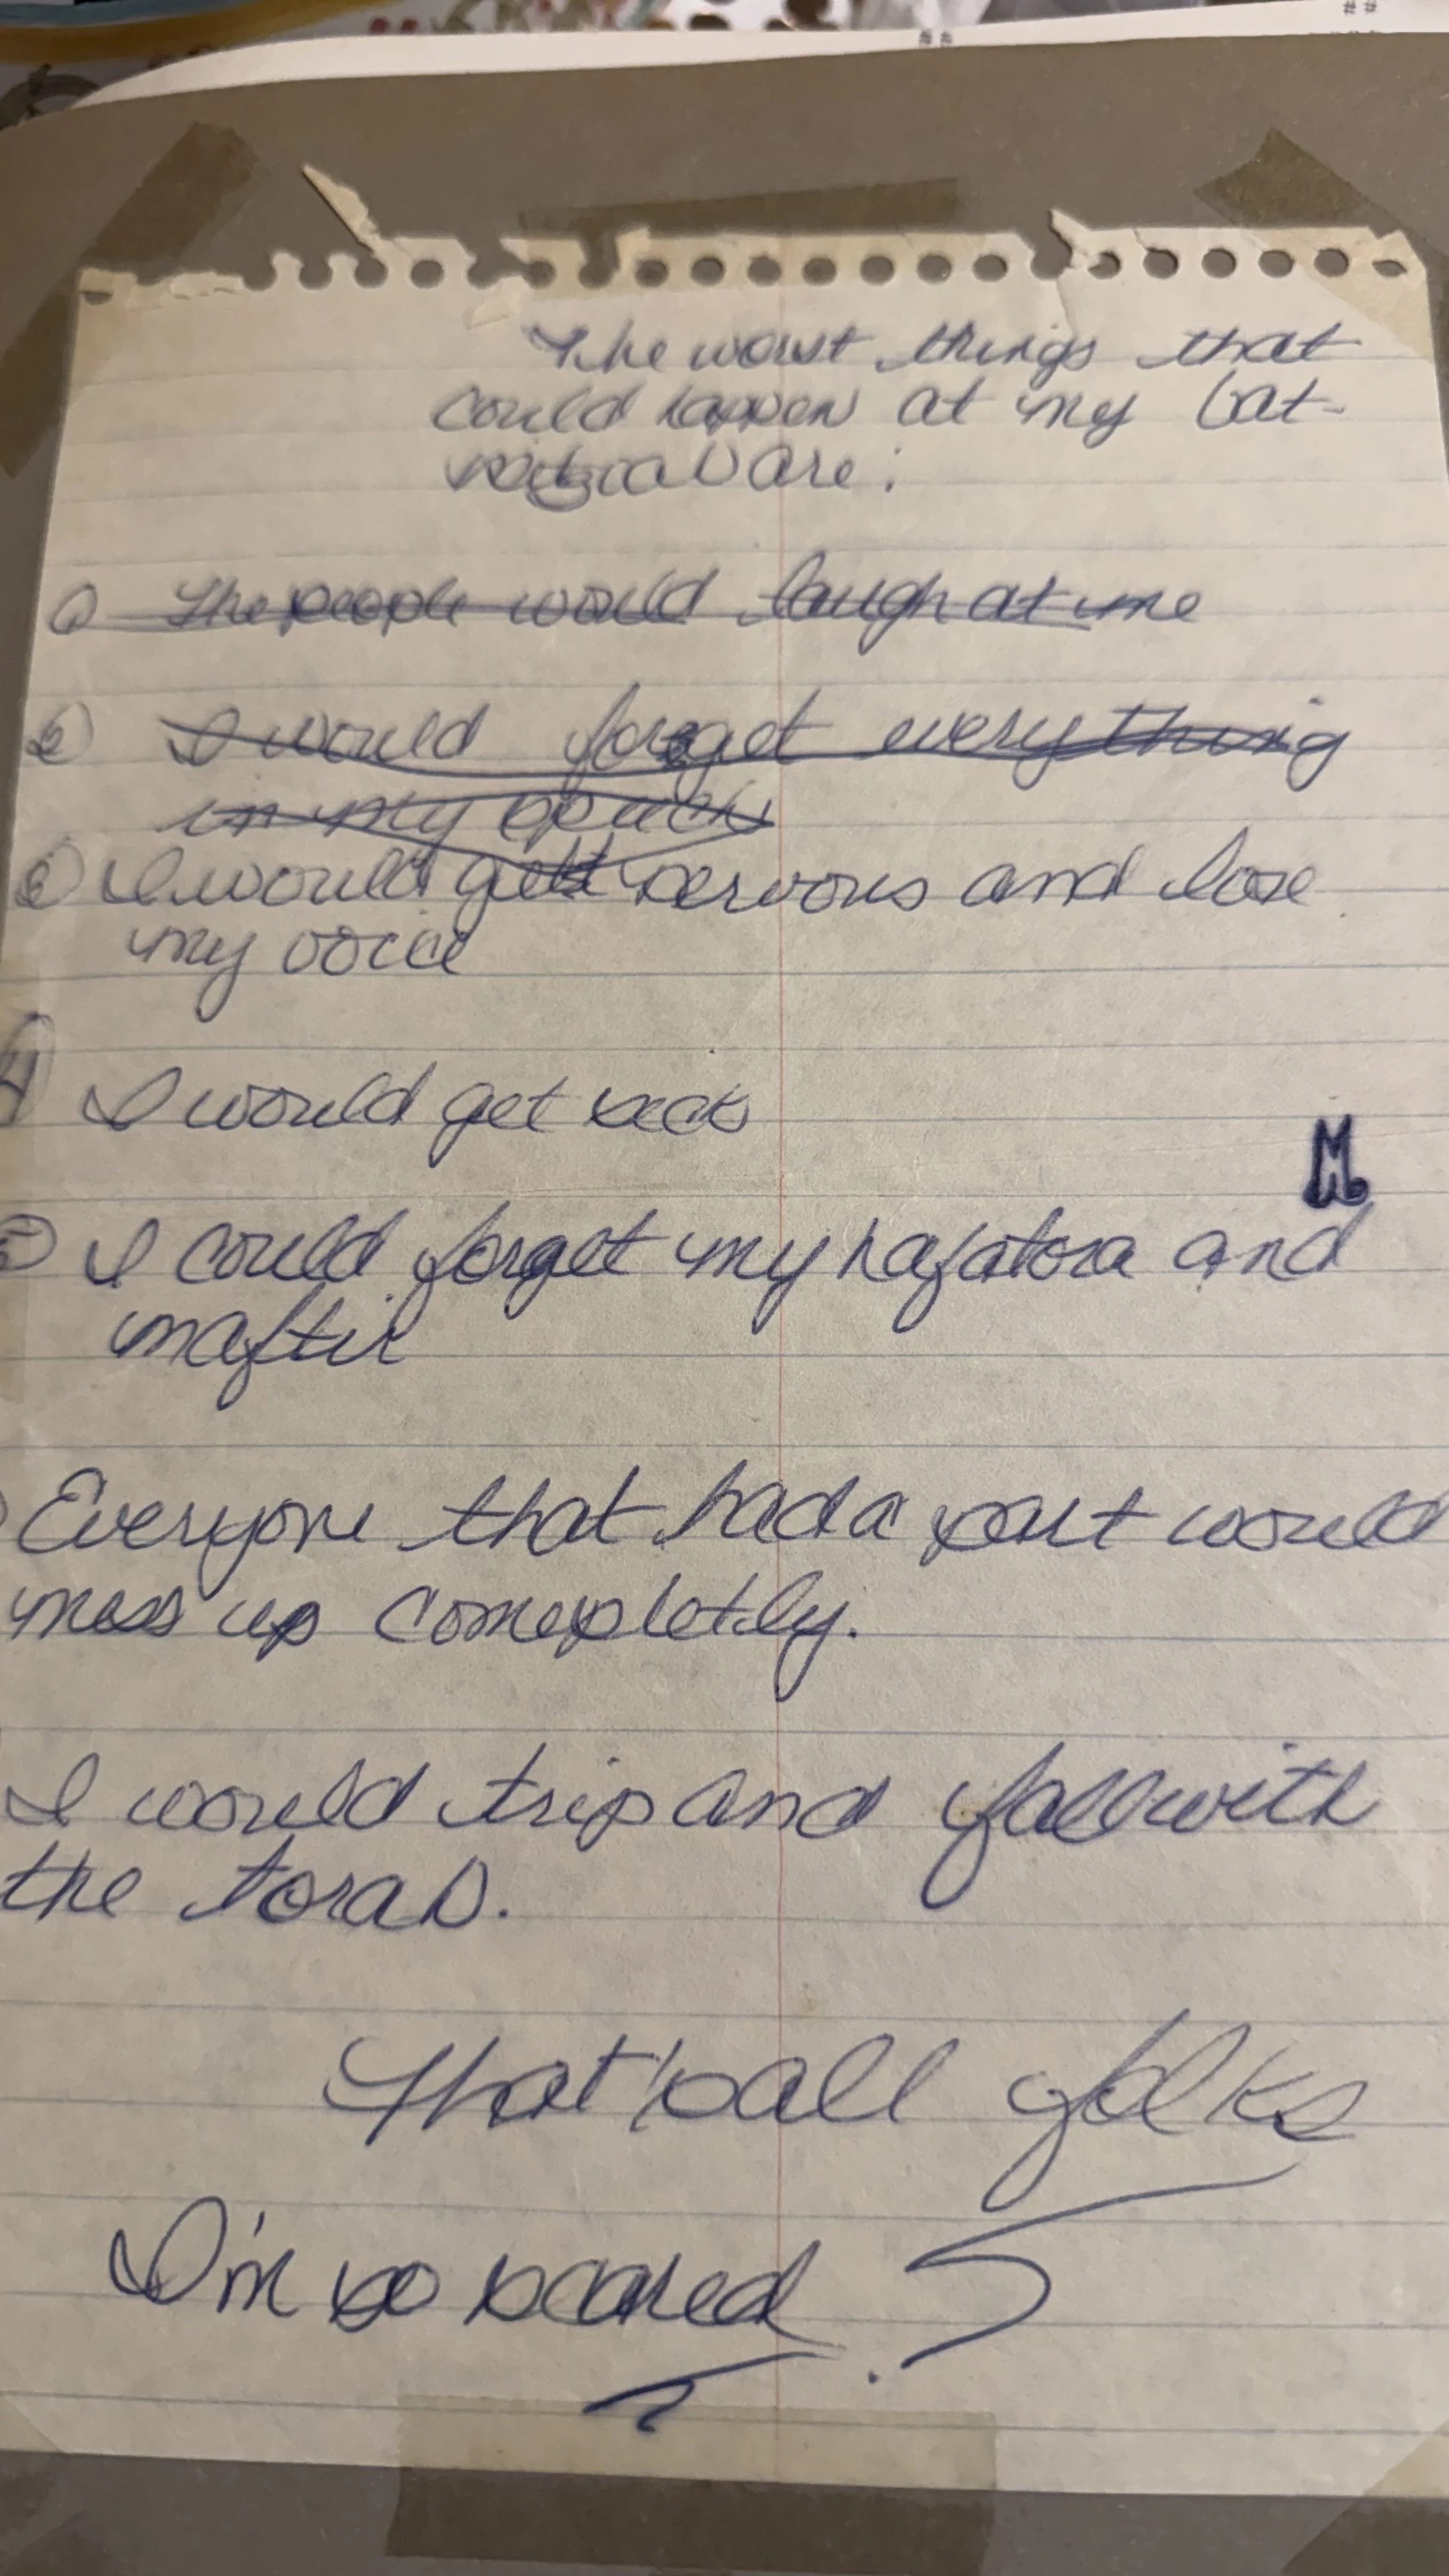 The worst things that
could happen at my bat-
mitzvah are:
① The people would laugh at me
② I would forget everything
in my speech
③ I would get nervous and lose
my voice
4) I would get sick
M
⑤ I could forget my hafatora and
maftir
Everyone that had a part would
mess up comepletly.
I would trip and fall with
the torah.
That's all folks
I'm so scared